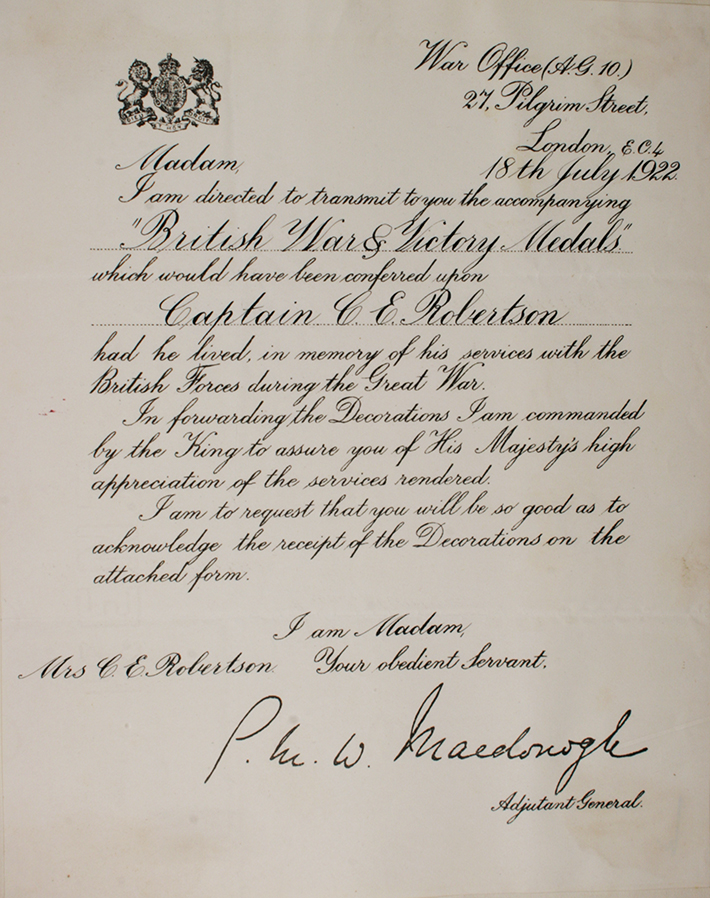 War Office (A.G. 10.)
27, Pilgrim Street,
London, E.C.4
18th July 1922.
Madam,
I am directed to transmit to you the accompanying
"British War & Victory Medals"
which would have been conferred upon
Captain C. E. Robertson
had he lived, in memory of his services with the
British Forces during the Great War.
In forwarding the Decorations I am commanded
by the King to assure you of His Majesty's high
appreciation of the services rendered.
I am to request that you will be so good as to
acknowledge the receipt of the Decorations on the
attached form.
I am Madam,
Mrs C. E. Robertson. Your obedient Servant.
G. M. W. Macdonogh
Adjutant General.